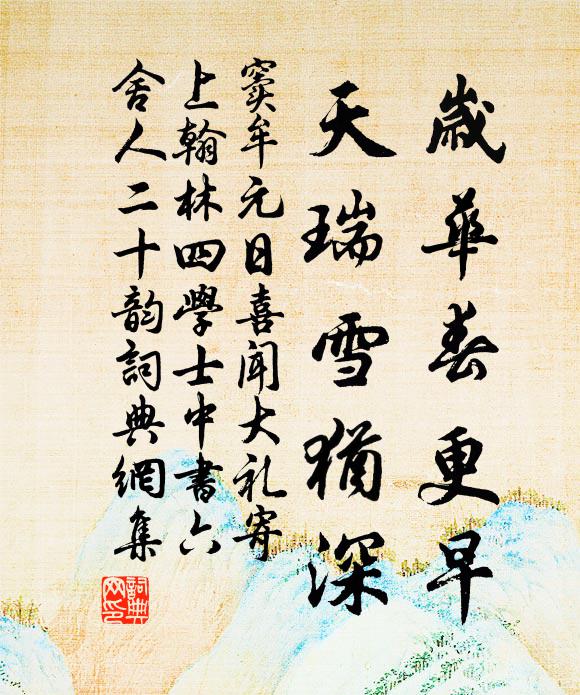 歲華春更早
天瑞雪猶深
窦牟元日喜聞大礼寄
上翰林四學士中書六
舍人二十韵詞典網集
詞典
网印